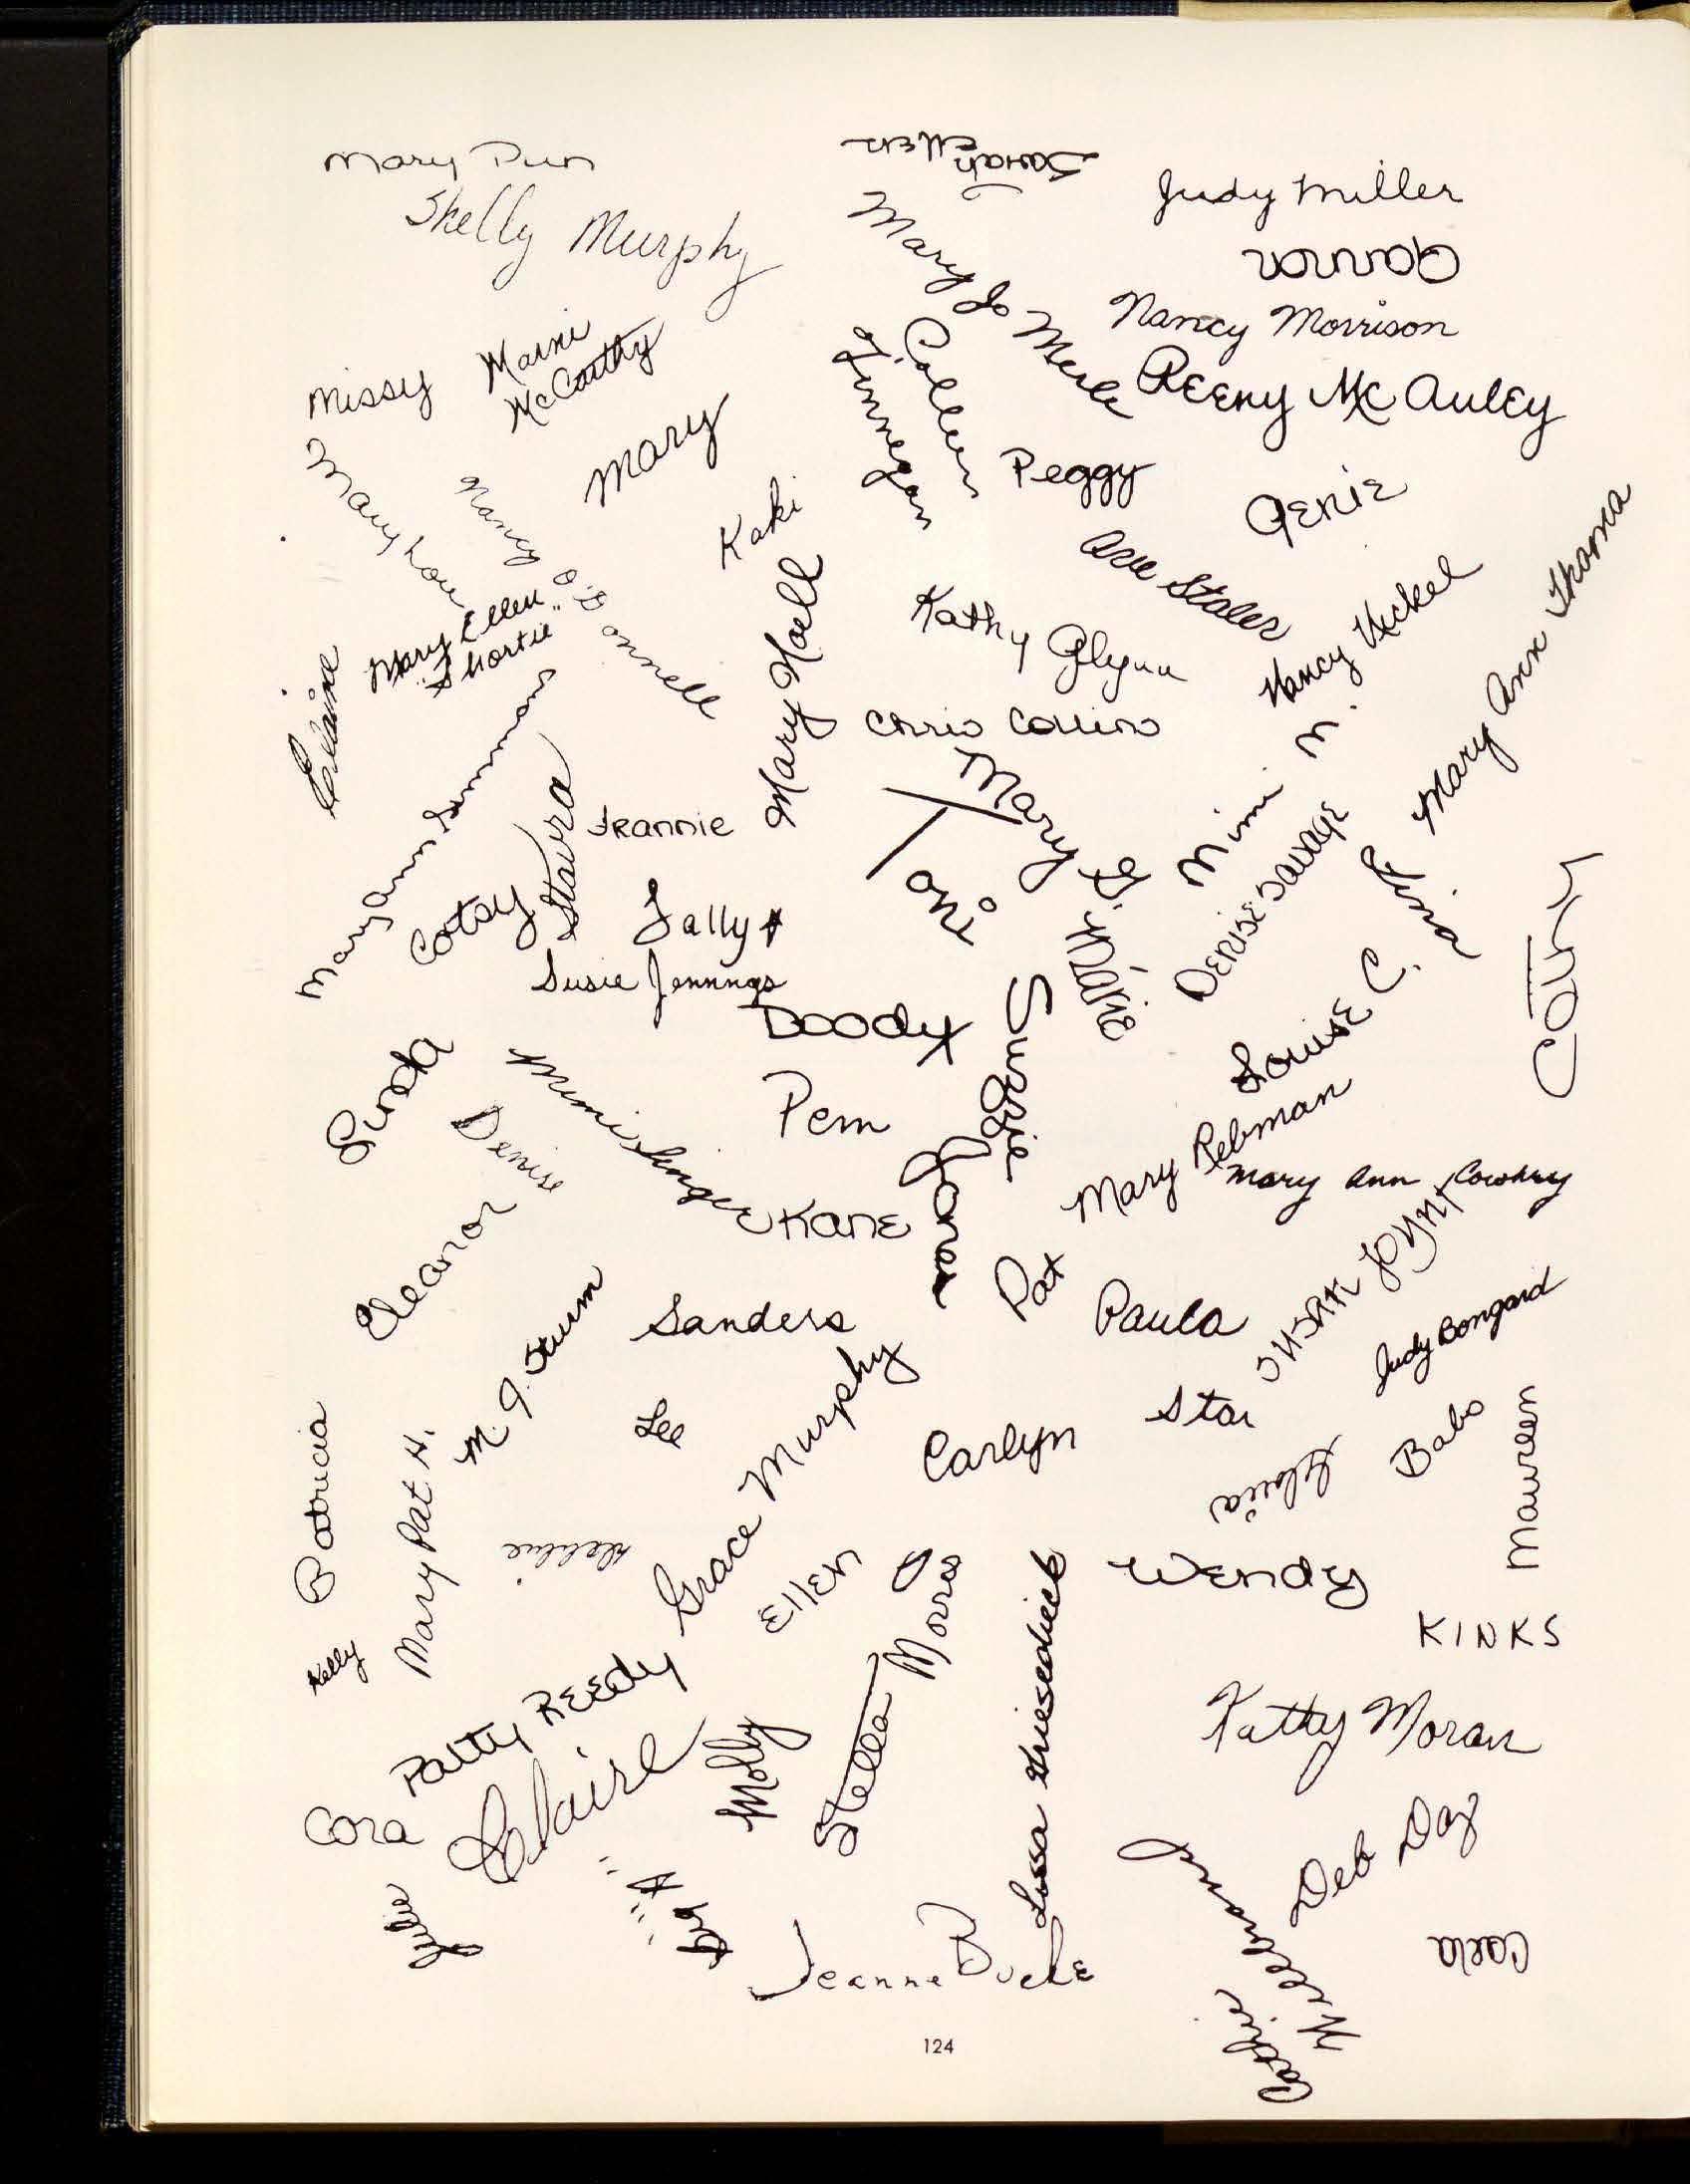 Mary Dun
Sarah Ellen
Judy Miller
Shelly Murphy
Connor
Mary Jo Merle
Nancy Morrison
Missy
Marni McCarthy
Colleen
Finnegan
Reeny McAuley
Mary
Peggy
Genie
Mary Lou
Nancy O'Donnell
Kaki
Sue Staler
Mary Ann Thoma
Mary Ellen
"Shortie"
Mary Noell
Kathy Glynn
Nancy Nickel
Elaine
Chris Collins
Mimi N.
Mary Ann Simmons
Staura
Jeannie
Toni
Mary G.
Denise Savage
Tina
Cotsy
Sally
Marie
Cathy
Susie Jennings
Doody
Suzzie
Louise C.
Linda
Mimi Singer
Pem
Denise
Mary Rebman
Mary Ann Cowhey
Kane
Joran
Eleanor
Pat
Paula
Susan Lynn
Sanders
Judy Bongard
M J. Sturm
Lee
Grace Murphy
Carlyn
Star
Babs
Maureen
Patricia
Mary Pat H.
Debbie
Sylvia
Ellen
Jo Morro
Wendy
KINKS
Kelly
Patty Reedy
Lissa Griesedieck
Kathy Moran
Claire
Molly
Stella
Cora
Deb Day
Julie
Big "A"
Jeanne Burke
Carla
Cathie Hillebrand
124